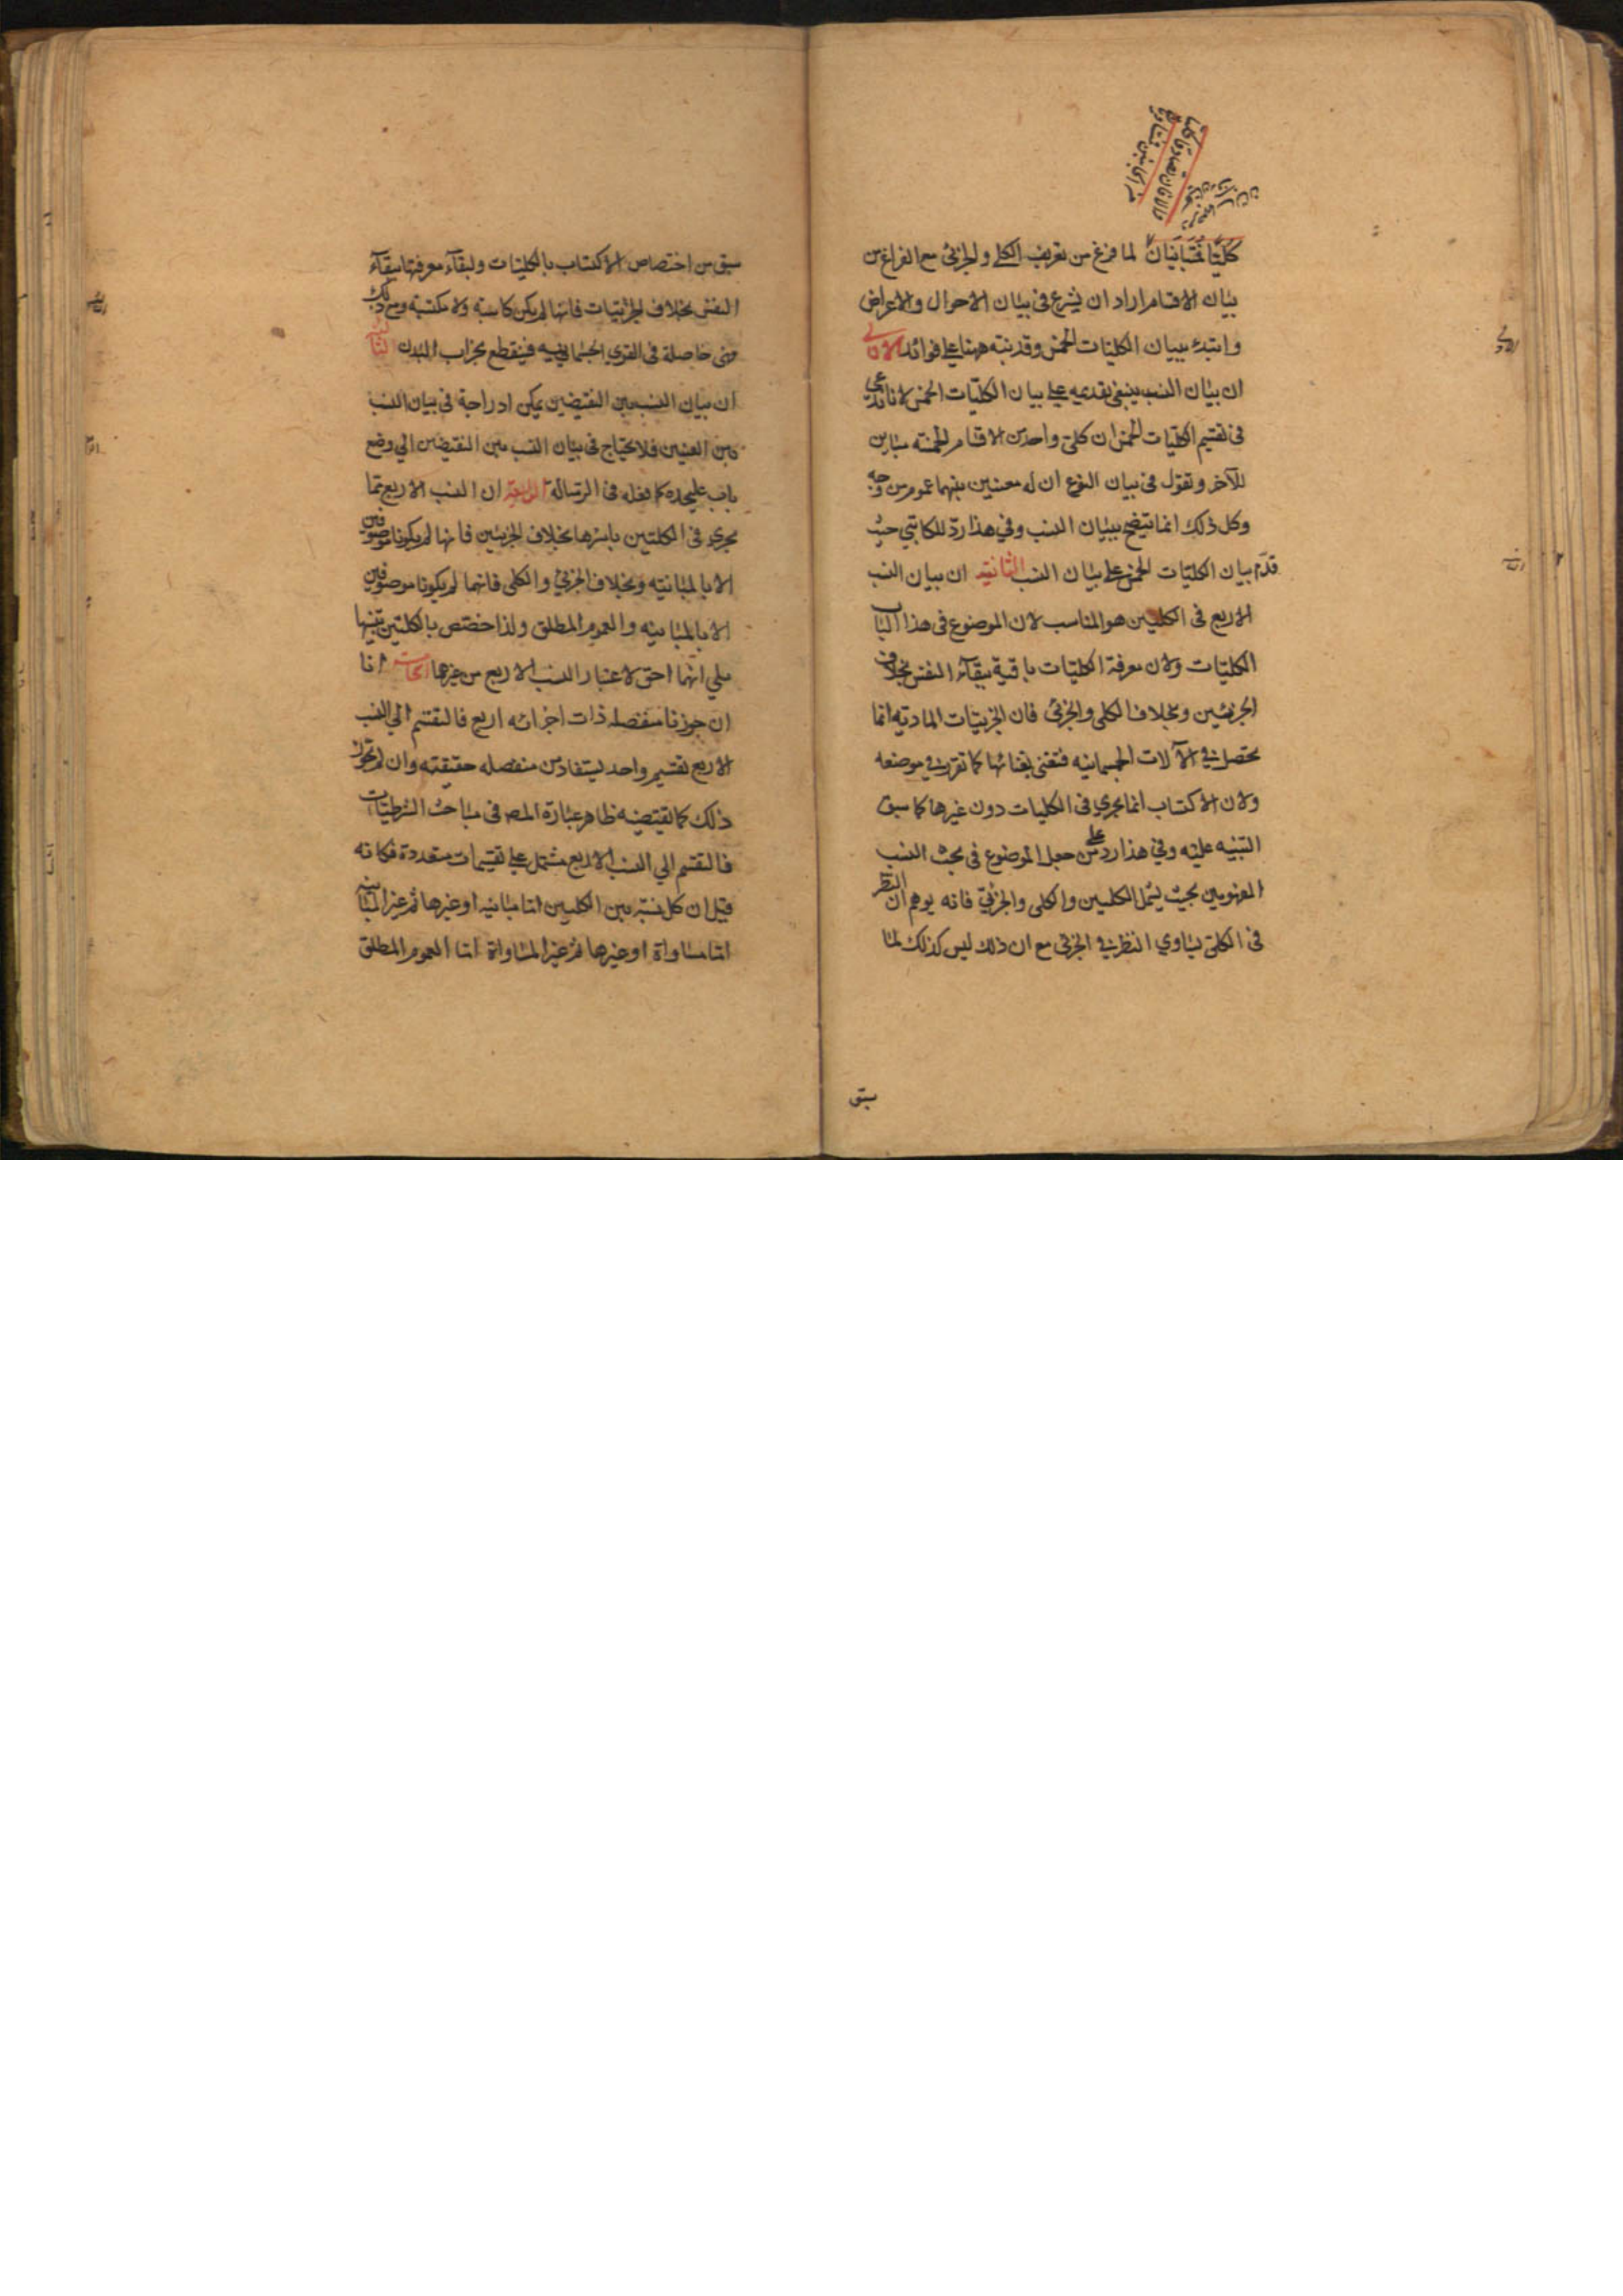 كليّا فمتباينان لما فرغ من تعريف الكلي والجزئي مع الفراغ من
بيان الاقسام اراد ان يشرع في بيان الاحوال والاعراض
وابتدء ببيان الكليات الخمس وقد نبّه ههنا علي فوائد الاولي
ان بيان النسب ينبغي تقديمه علي بيان الكليّات الخمس لانا ندعي
في تقسيم الكليّات الخمس ان كلّ واحد من الاقسام الخمسه مباين
للآخر ونقول في بيان النوع ان له معنيين بينهما عموم من وجه
وكل ذلك انما يتضح ببيان النسب وفي هذا ردّ للكاتبي حيث
قدّم بيان الكليّات الخمس علي بيان النسب الثانيه ان بيان النسب
الاربع في الكليين هو المناسب لان الموضوع في هذا الباب
الكليّات ولان معرفة الكليّات باقية ببقآء النفس بخلاف
الجزئيين وبخلاف الكلي والجزئي فان الجزئيات الماديّه انما
تحصل في الآلات الجسمانيه فتفني بفنائها كما تقرر في موضعه
ولان الاكتساب انما يجري في الكليات دون غيرها كما سبق
التنبيه عليه وفي هذا رد علي من جعل الموضوع في بحث النسب
المفهومين بحيث يشمل الكليين والكلي والجزئي فانه يوهم ان النظر
في الكلي يساوي النظر في الجزئي مع ان ذلك ليس كذلك لما
سبق
سبق من اختصاص الاكتساب بالكليات ولبقآء معرفتها ببقآء
النفس بخلاف الجزئيات فانها لم يكن كاسبة ولا مكتسبة ومع ذلك
فهي حاصلة في القوي الجسمانيه فينقطع بخراب البدن الثالثة
ان بيان النسب بين النقيضين يمكن ادراجه في بيان النسب
بين العينين فلا يحتاج في بيان النسب بين النقيضين الي وضع
باب عليحده كما فعله في الرساله الرابعة ان النسب الاربع انما
يجري في الكليين باسرها بخلاف الجزئيين فانهما لم يكونا موصوفين
الا بالمباينه وبخلاف الجزئي والكلي فانهما لم يكونا موصوفين
الا بالمباينه والعموم المطلق ولذا خصّص بالكليين تنبيها
علي انّهما احق لاعتبار النسب الاربع من غيرها الخامسة انا
ان جوزنا منفصله ذات اجزائه اربع فالتقسيم الي النسب
الاربع تقسيم واحد يستفاد من منفصله حقيقيه وان لم نجوز
ذلك كما يقتضيه ظاهر عبارة المص في مباحث الشرطيات
فالتقسيم الي النسب الاربع مشتمل علي تقسيمات متعددة فكانه
قيل ان كل نسبة بين الكليين اما مباينه او غيرها ثم غير المباينه
اما مساواة او غيرها ثم غير المساواة اما العموم المطلق